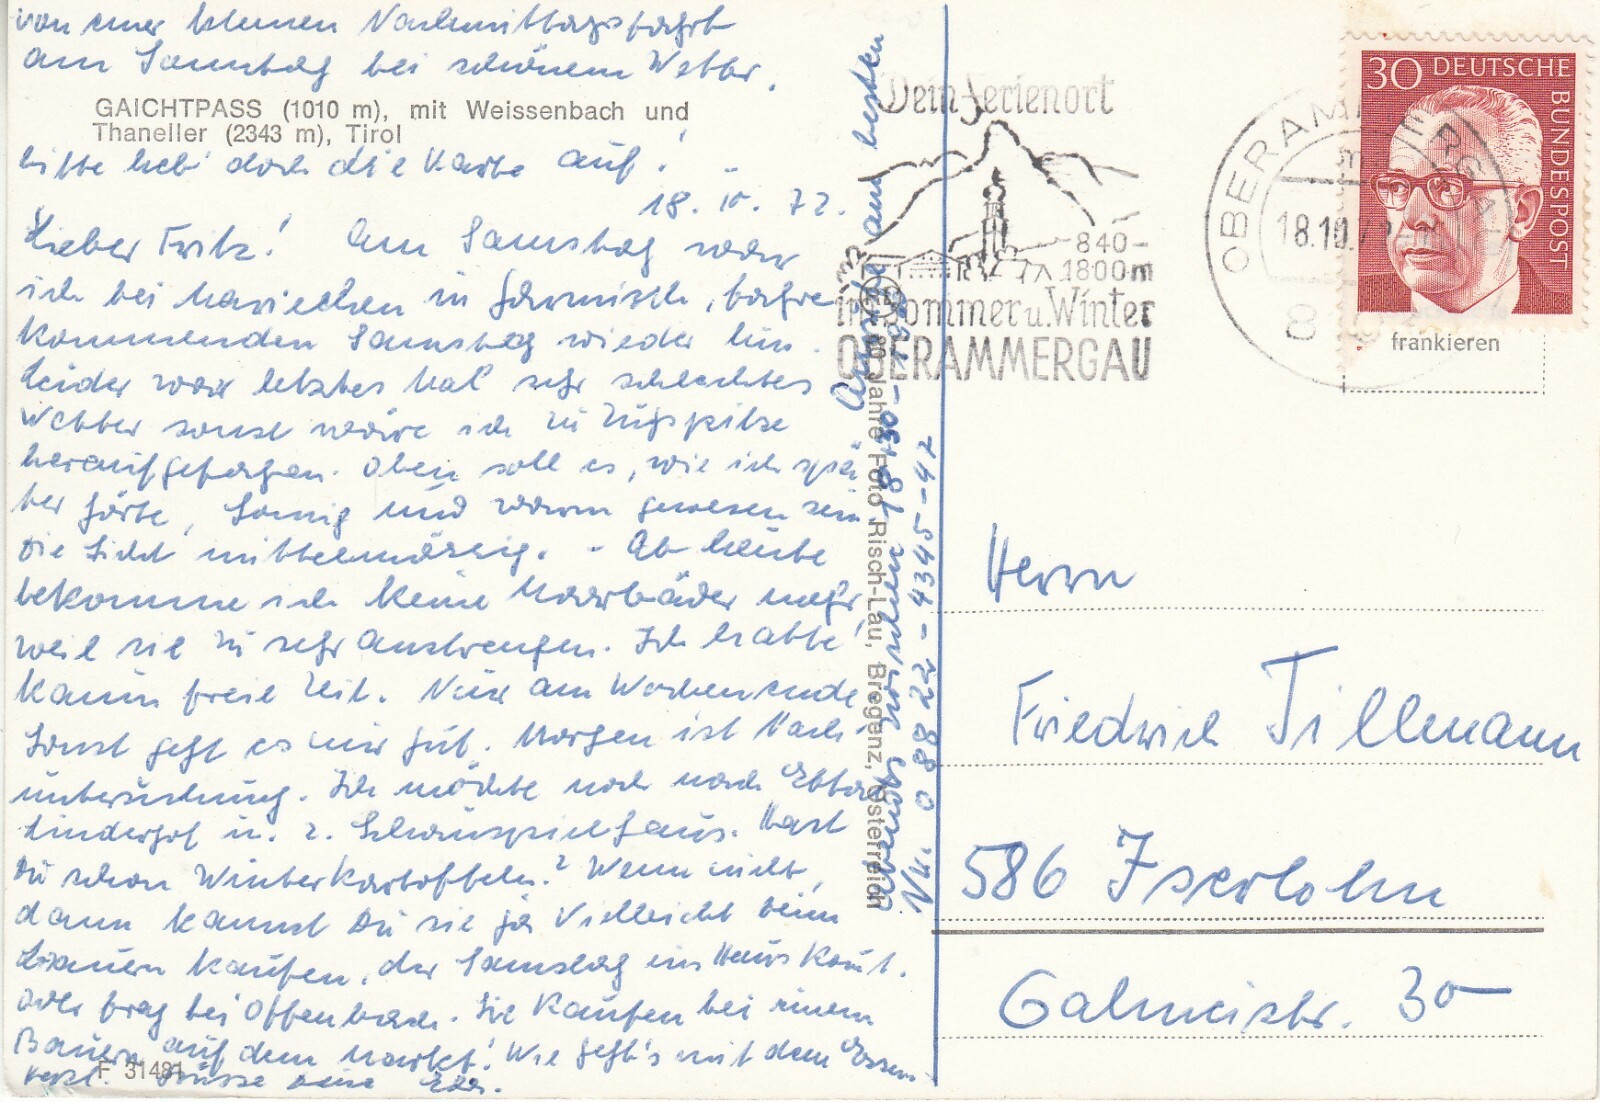 von einer kleinen Nachmittagsfahrt
am Samstag bei schönem Wetter.
GAICHTPASS (1010 m), mit Weissenbach und
Thaneller (2343 m), Tirol
bitte heb' doch die Karte auf!
18. 10. 72.
Lieber Fritz! Am Samstag war
ich bei Mariechen in Garmisch, fahre
kommenden Samstag wieder hin.
Leider war letztes Mal sehr schlechtes
Wetter sonst wäre ich zu Zugspitze
heraufgefahren. Oben soll es, wie ich spä-
ter hörte, sonnig und warm gewesen sein
die Sicht mittelmässig. - Ab heute
bekomme ich keine Moorbäder mehr,
weil sie zu sehr anstrengen. Ich hatte
kaum freie Zeit. Nur am Wochenende
Sonst geht es mir gut. Morgen ist Nach-
untersuchung. Ich möchte noch nach Ettal
Linderhof u. z. Schauspielhaus. Hast
Du schon Winterkartoffeln? Wenn nicht,
dann kannst Du sie ja vielleicht beim
Bauern kaufen, der Samstag ins Haus kommt.
oder frag bei Offenbach. Sie kaufen bei einem
Bauern auf dem Markt! Wie geht's mit dem Essen
F 31481 Grüsse deine
Anrufe am besten
abends zwischen 18³⁰-19³⁰
Nr. 0 88 22 - 4345-42
Jahre Foto Risch-Lau, Bregenz, Österreich
Dein Ferienort
840-
1800m
im Sommer u. Winter
OBERAMMERGAU
OBERAMMERGAU
18.10.72
8
30 DEUTSCHE
BUNDESPOST
frankieren
Herrn
Friedrich Tillmann
586 Iserlohn
Galmeistr. 30